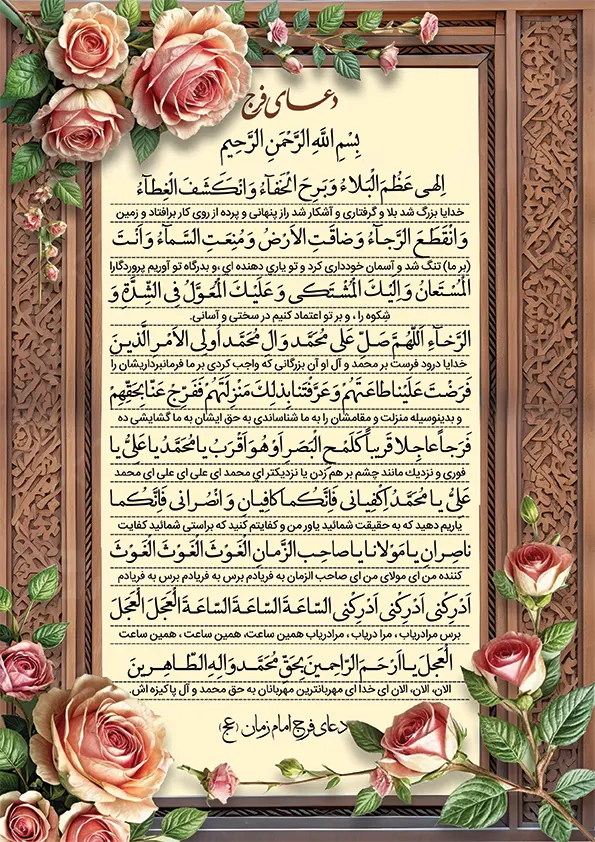 دعای فرج
بِسْمِ اللَّهِ الرَّحْمَنِ الرَّحِيمِ
اِلٰهی عَظُمَ الْبَلاءُ وَبَرِحَ الْخَفاءُ وَانْكَشَفَ الْغِطاءُ
خدایا بزرگ شد بلا و گرفتاری و آشکار شد راز پنهانی و پرده از روی کار برافتاد و زمین
وَانْقَطَعَ الرَّجاءُ وَضاقَتِ الاَرْضُ وَمُنِعَتِ السَّماءُ وَاَنْتَ
(بر ما) تنگ شد و آسمان خودداری کرد و تو یاری دهنده ای ،و بدرگاه تو آوریم پروردگارا
الْمُسْتَعانُ وَاِلَيْكَ الْمُشْتَكی وَعَلَيْكَ الْمُعَوَّلُ فِی الشِّدَّةِ وَ
شکوه را ، و بر تو اعتماد کنیم در سختی و آسانی.
الرَّخاءِ اَللّهُمَّ صَلِّ عَلی مُحَمَّدٍ وَالِ مُحَمَّدٍ اُولِی الاَمْرِ الَّذینَ
خدایا درود فرست بر محمد و آل او آن بزرگانی که واجب کردی بر ما فرمانبرداریشان را
فَرَضْتَ عَلَيْنا طاعَتَهُمْ وَعَرَّفْتَنا بِذلِكَ مَنْزِلَتَهُمْ فَفَرِّجْ عَنّا بِحَقِّهِمْ
و بدینوسیله منزلت و مقامشان را به ما شناساندی به حق ایشان به ما گشایشی ده
فَرَجاً عاجِلا قَریباً كَلَمْحِ الْبَصَرِ اَوْ هُوَ اَقْرَبُ یا مُحَمَّدُ یا عَلِیُّ یا
فوری و نزدیک مانند چشم بر هم زدن یا نزدیکتر ای محمد ای علی ای علی ای محمد
عَلِیُّ یا مُحَمَّدُ اِكْفِیانی فَاِنَّكُما كافِیانِ وَانْصُرانی فَاِنَّكُما
یاریم دهید که به حقیقت شمائید یاور من و کفایتم کنید که براستی شمائید کفایت
ناصِرانِ یا مَوْلانا یا صاحِبَ الزَّمانِ الْغَوْثَ الْغَوْثَ الْغَوْثَ
کننده من ای مولای من ای صاحب الزمان به فریادم برس به فریادم برس به فریادم
اَدْرِكْنی اَدْرِكْنی اَدْرِكْنی السّاعَةَ السّاعَةَ السّاعَةَ الْعَجَلَ الْعَجَلَ
برس مرادریاب ، مرا دریاب ، مرادریاب همین ساعت، همین ساعت ، همین ساعت
الْعَجَلَ یا اَرْحَمَ الرّاحِمینَ بِحَقِّ مُحَمَّدٍ وَالِهِ الطّاهِرینَ
الان، الان، الان ای خدا ای مهربانترین مهربانان به حق محمد و آل پاکیزه اش.
دعای فرج امام زمان (عج)